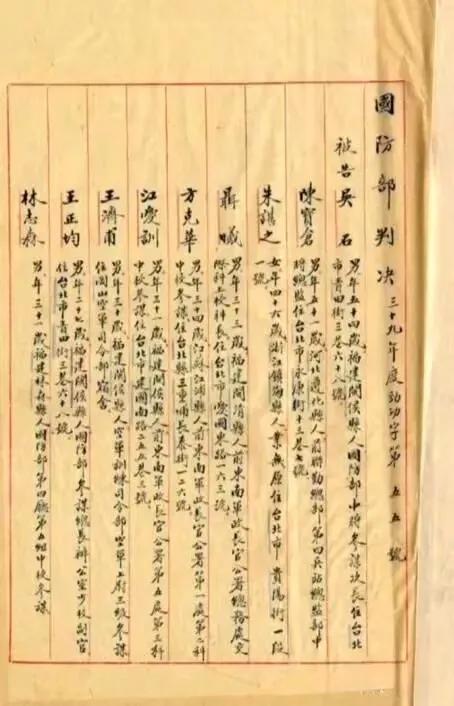 國防部判決 三十九年度勁功字第五五號
被告吳石 男年五十四歲福建閩侯縣人國防部中將參謀次長住台北
市青田街三巷六十八號
陳寶倉 男年五十一歲河北遵化縣人前聯勤總部第四兵站總監部中
將總監住台北市永康街十三巷七號
朱諶之 女年四十六歲浙江鎮海縣人業無原住台北市貴陽街一段
一號
聶曦 男年三十三歲福建閩清縣人前東南軍政長官公署總務處交
際科上校科長住台北市愛國東路一六三號
方克華 男年三十四歲江蘇江浦縣人前東南軍政長官公署第一處第二科
中校參謀住台北縣三重埔長泰街一二六號
江愛訓 男年三十一歲福建閩侯縣人前東南軍政長官公署第五處第三科
中校參謀住台北市建國南路二五五巷三號
王濟甫 男年三十歲福建閩侯縣人空軍訓練司令部空軍上尉三級參謀
住岡山空軍司令部宿舍
王正均 男年二十七歲福建閩侯縣人國防部參謀總長辦公室少校副官
住台北市青田街三巷六十八號
林志森 男年三十一歲福建林森縣人國防部第四廳第五組中校參謀